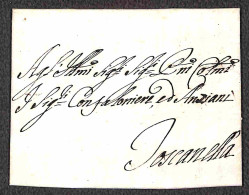 Agl' Illmi Sigri Sigri Oni Colmi
I Sigri Confaloniero, ed Anziani
Toscanella